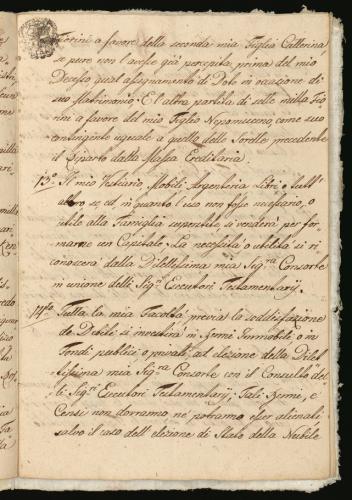 Fiorini a favore della seconda mia Figlia Catterina,
se pure non l'avesse già percepita prima del mio
Decesso qual assegnamento di Dote in occasione di
suo Matrimonio. E l'altra partita di sette milla Fio,,
rini a favore del mio Figlio Nepomuceno, come suo
contingente uguale a quello delle Sorelle precedente
il Riparto dalla Massa Ereditaria.
13.° Il mio Vestiario, Mobili, Argenteria, Libri, e tutt'
altro se ed in quanto l'uso non fosse necessario, o
utile alla Famiglia superstite, si venderà per for,,
marne un Capitale. La necessità o utilità si ri
conoscerà dalla Dilettissima mia Sig.ra Consorte
in unione delli Sig.ri Esecutori Testamentarij.
14.to Tutta la mia Facoltà previa la soddisfazione
de Debiti si investirà in Beni Immobili, o in
Fondi publici, o privati, ad elezione della Dilet
tissima mia Sig.ra Consorte con il Consulto del,,
li Sig.ri Esecutori Testamentarij; Tali Beni, e
Censi non dovranno, nè potranno esser alienati
salvo il caso dell'elezione di Stato della Nubile